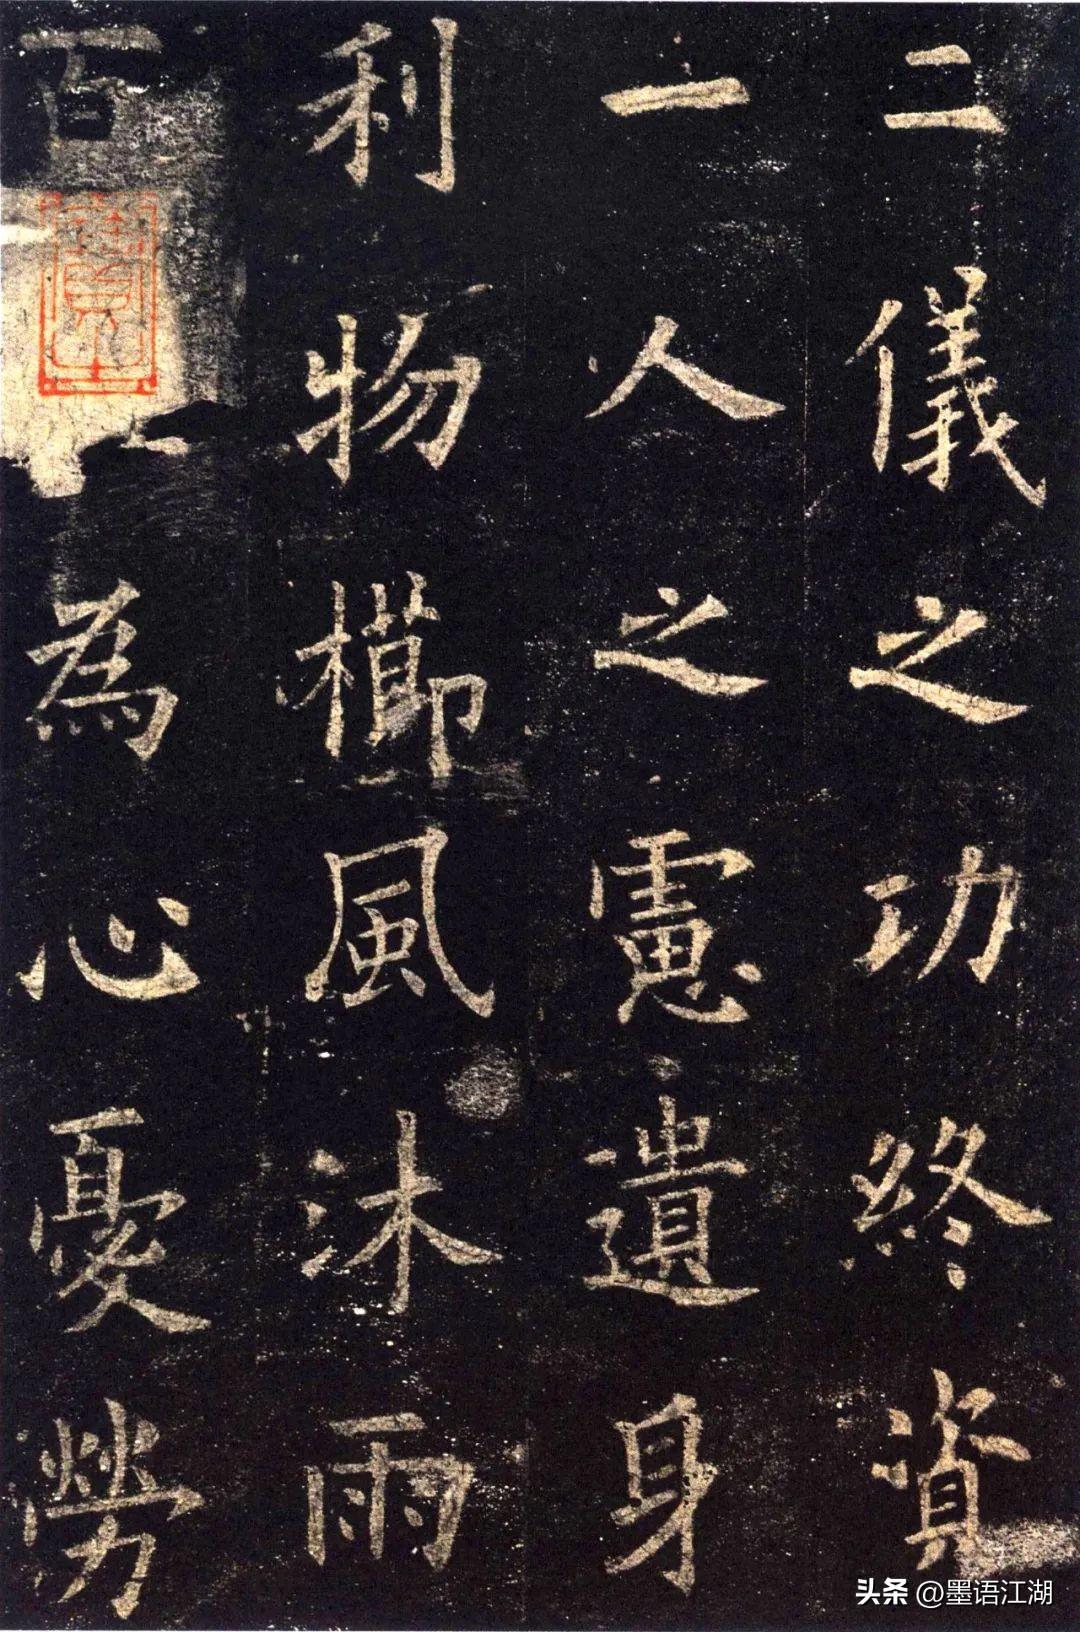 二儀之功終資
一人之慮遺身
利物櫛風沐雨
百為心憂勞
头条 @墨语江湖